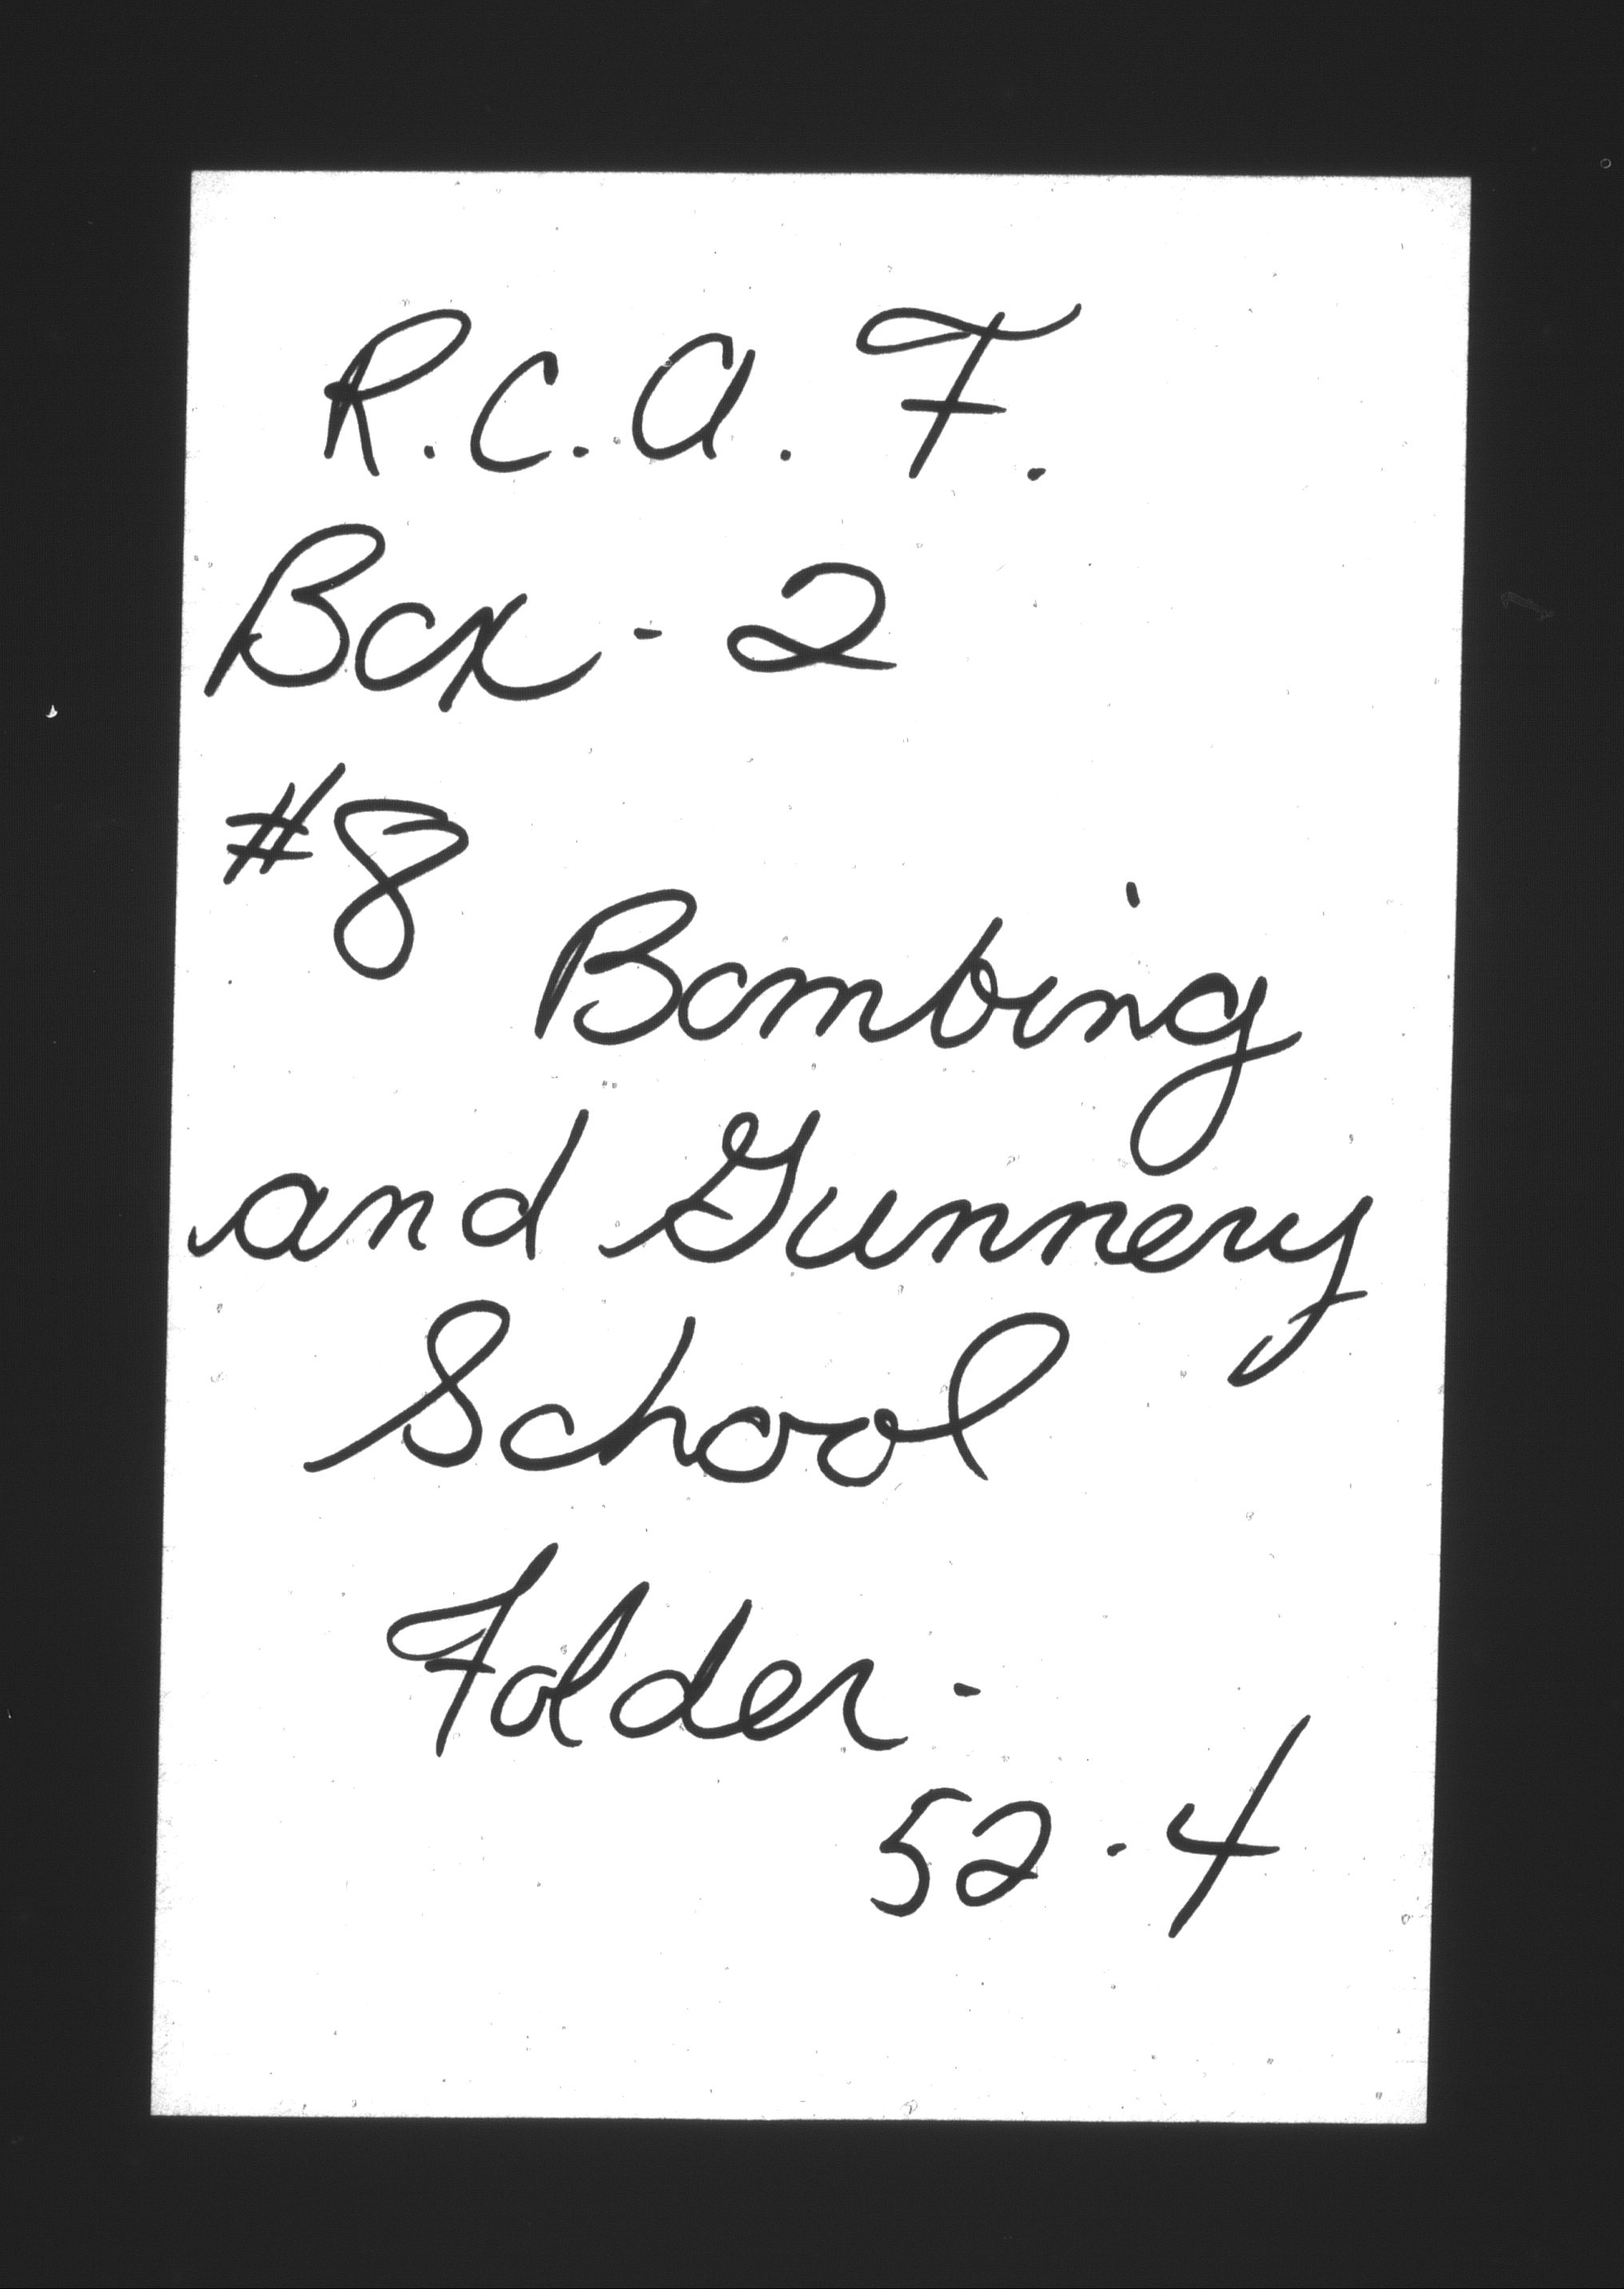 R.C.A.F.
Box - 2
#8
Bombing
and Gunnery
School
Folder -
52-4